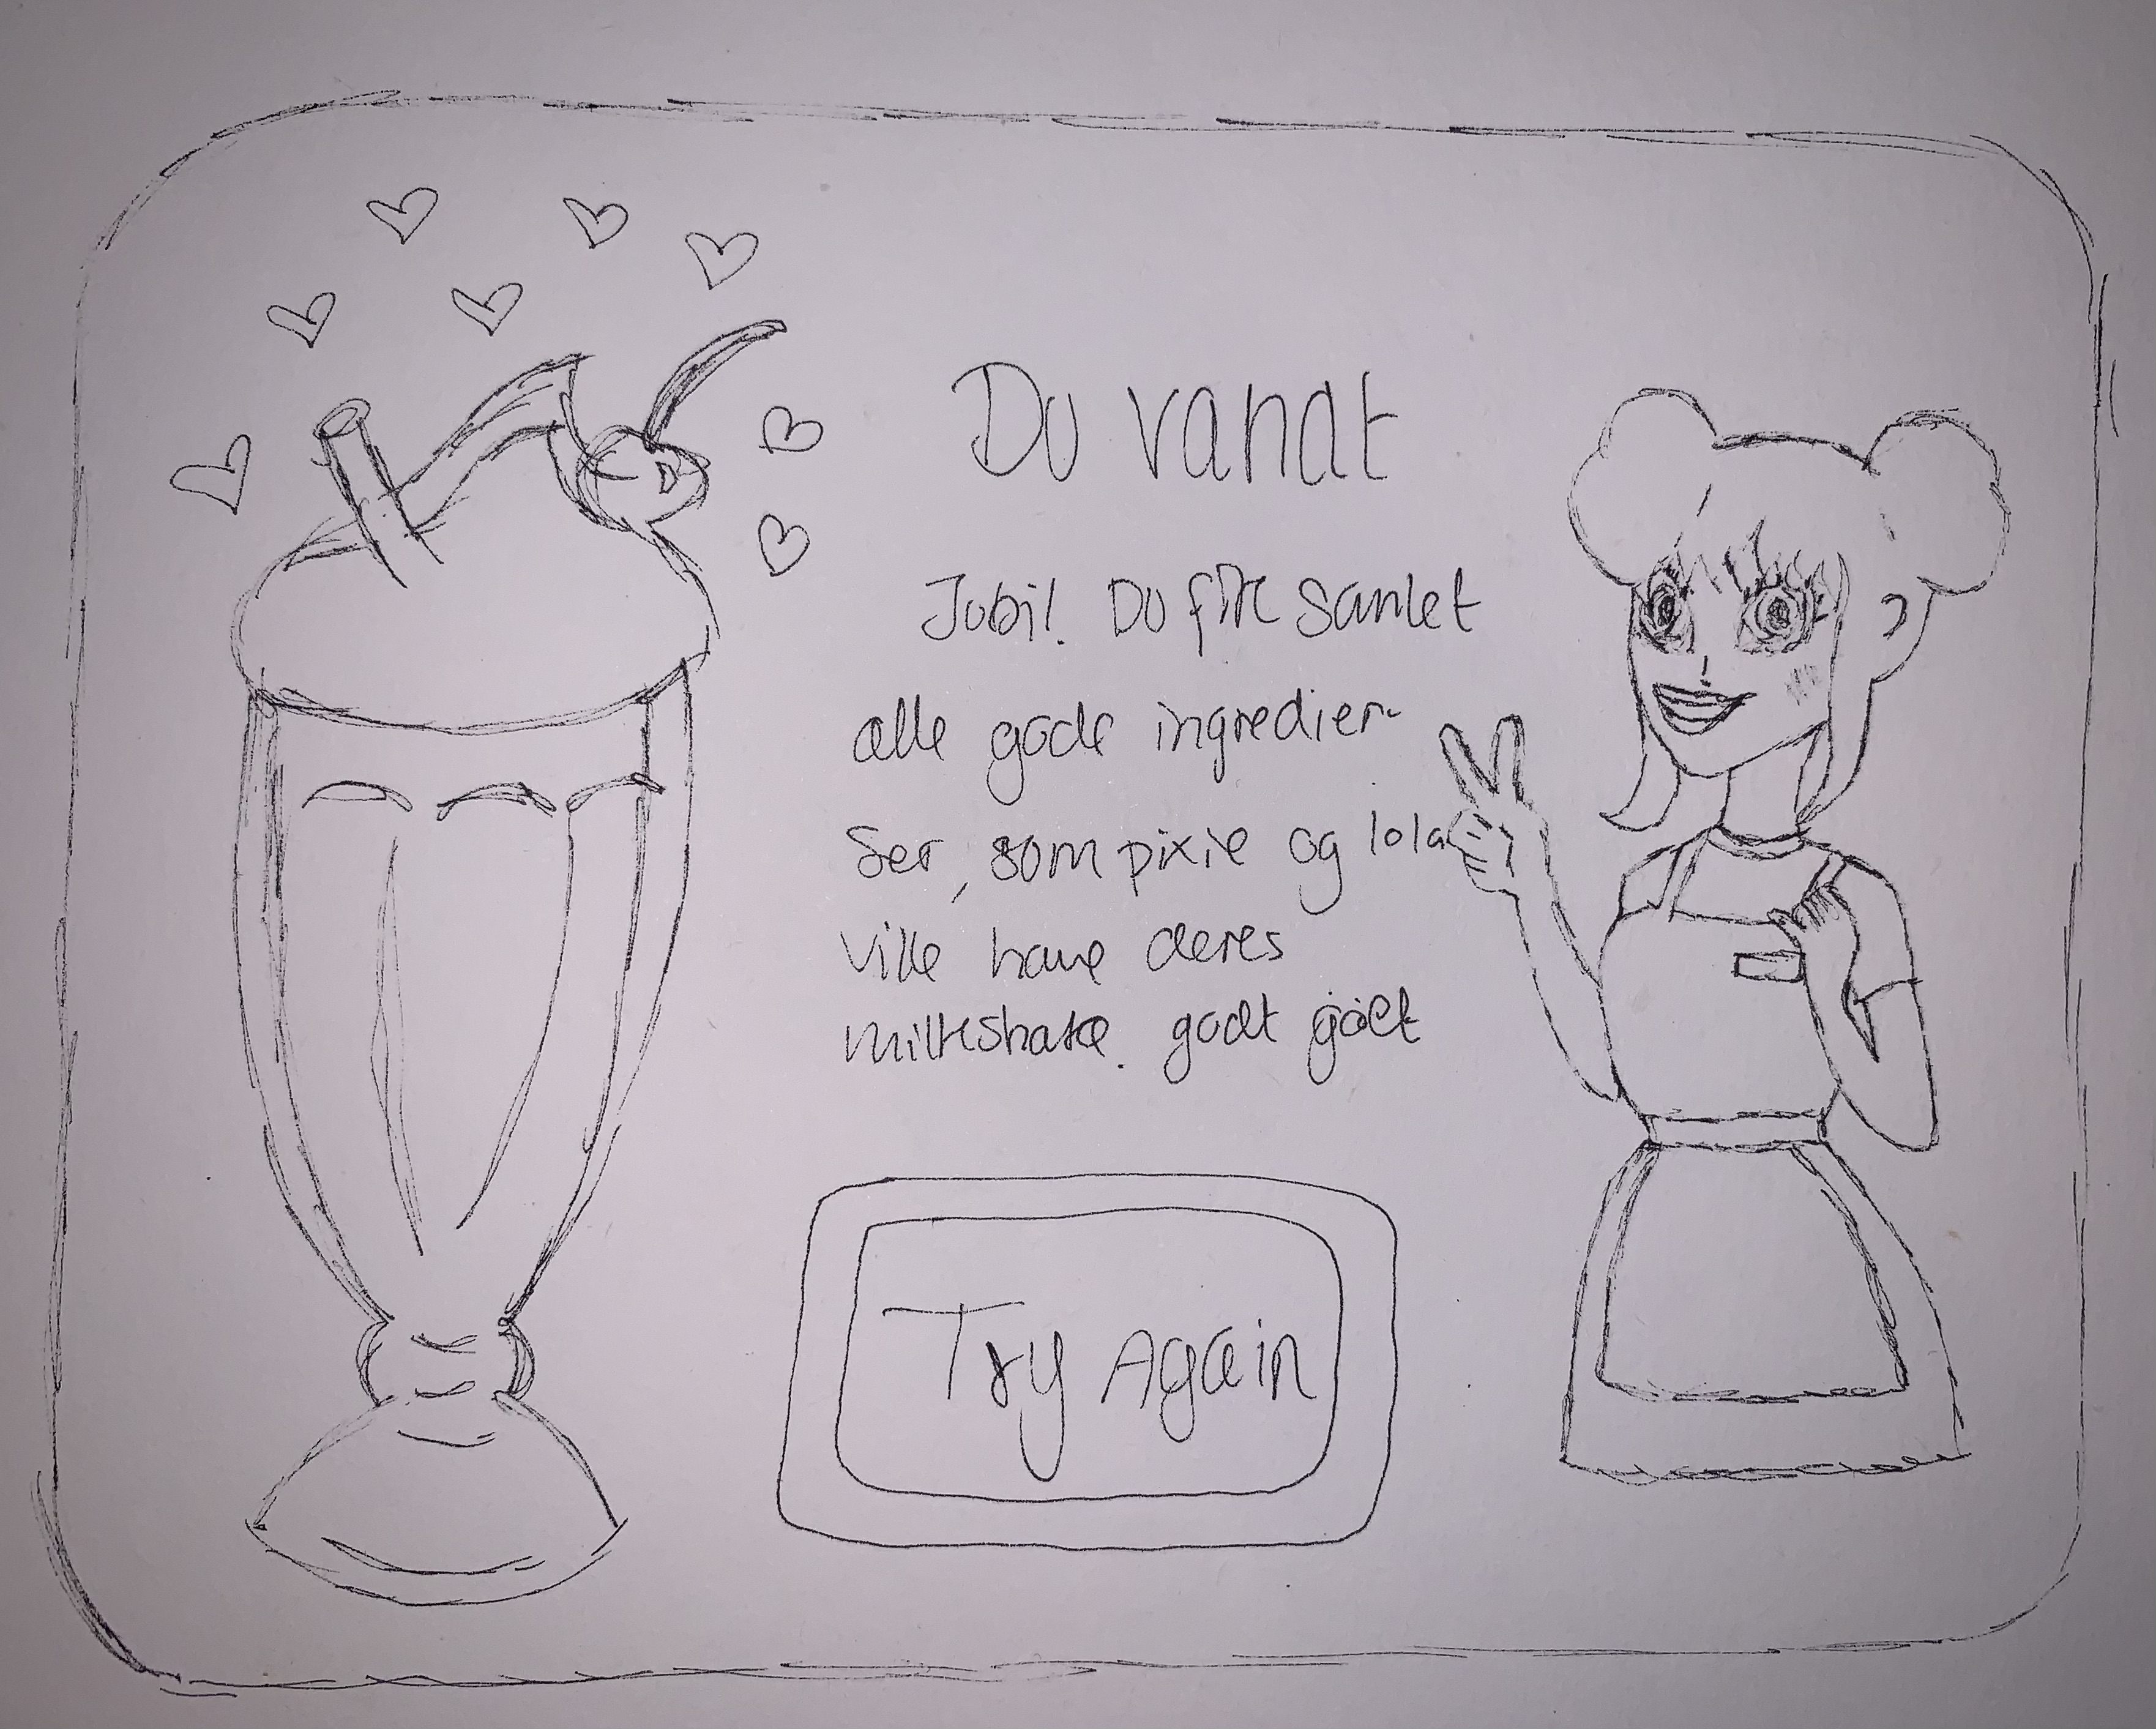 Du vandt
Jubi! Du fik samlet
alle gode ingredien-
ser, som pixie og lola
ville have deres
milkshake. godt gået
Try Again